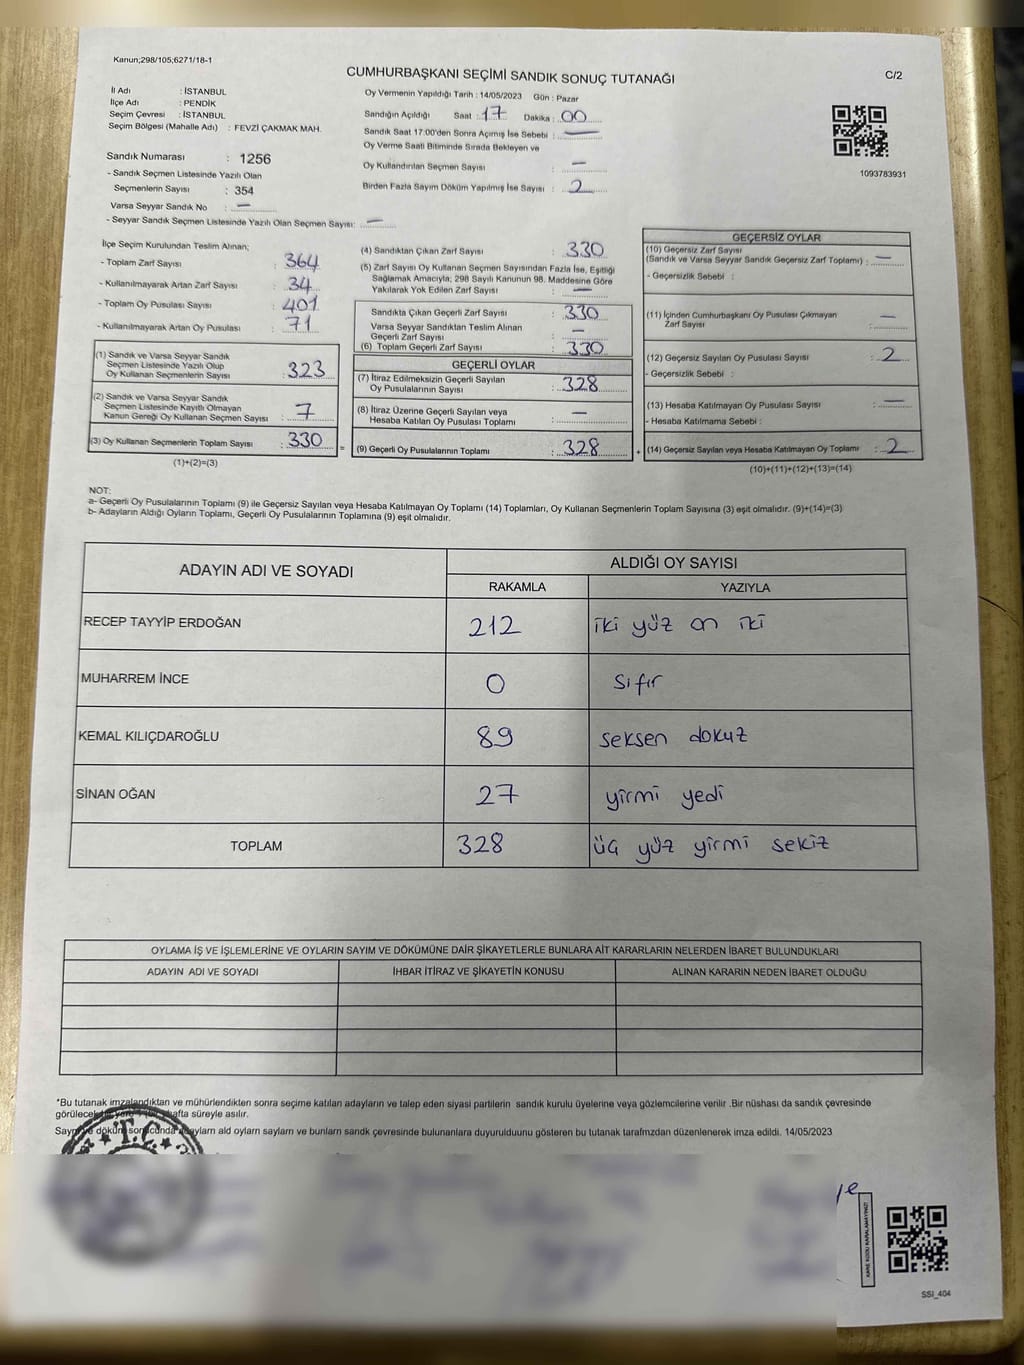 Kanun;298/105;6271/18-1
CUMHURBAŞKANI SEÇİMİ SANDIK SONUÇ TUTANAĞI
C/2
İl Adı : İSTANBUL
İlçe Adı : PENDİK
Seçim Çevresi : İSTANBUL
Seçim Bölgesi (Mahalle Adı) : FEVZİ ÇAKMAK MAH.
Sandık Numarası : 1256
- Sandık Seçmen Listesinde Yazılı Olan
Seçmenlerin Sayısı : 354
Varsa Seyyar Sandık No : —
- Seyyar Sandık Seçmen Listesinde Yazılı Olan Seçmen Sayısı: —
Oy Vermenin Yapıldığı Tarih : 14/05/2023 Gün : Pazar
Sandığın Açıldığı Saat : 17 Dakika : 00
Sandık Saat 17:00'den Sonra Açımış İse Sebebi : —
Oy Verme Saati Bitiminde Sırada Bekleyen ve
Oy Kullandırılan Seçmen Sayısı : —
Birden Fazla Sayım Döküm Yapılmış İse Sayısı : 2
1093783931
İlçe Seçim Kurulundan Teslim Alınan;
- Toplam Zarf Sayısı : 364
- Kullanılmayarak Artan Zarf Sayısı : 34
- Toplam Oy Pusulası Sayısı : 401
- Kullanılmayarak Artan Oy Pusulası : 71
(1) Sandık ve Varsa Seyyar Sandık
Seçmen Listesinde Yazılı Olup
Oy Kullanan Seçmenlerin Sayısı : 323
(2) Sandık ve Varsa Seyyar Sandık
Seçmen Listesinde Kayıtlı Olmayan
Kanun Gereği Oy Kullanan Seçmen Sayısı : 7
(3) Oy Kullanan Seçmenlerin Toplam Sayısı : 330 =
(1)+(2)=(3)
(4) Sandıktan Çıkan Zarf Sayısı : 330
(5) Zarf Sayısı Oy Kullanan Seçmen Sayısından Fazla İse, Eşitliği
Sağlamak Amacıyla; 298 Sayılı Kanunun 98. Maddesine Göre
Yakılarak Yok Edilen Zarf Sayısı : —
Sandıkta Çıkan Geçerli Zarf Sayısı : 330
Varsa Seyyar Sandıktan Teslim Alınan
Geçerli Zarf Sayısı : —
(6) Toplam Geçerli Zarf Sayısı : 330
GEÇERLİ OYLAR
(7) İtiraz Edilmeksizin Geçerli Sayılan
Oy Pusulalarının Sayısı : 328
(8) İtiraz Üzerine Geçerli Sayılan veya
Hesaba Katılan Oy Pusulası Toplamı : —
(9) Geçerli Oy Pusulalarının Toplamı : 328 +
GEÇERSİZ OYLAR
(10) Geçersiz Zarf Sayısı
(Sandık ve Varsa Seyyar Sandık Geçersiz Zarf Toplamı) : —
- Geçersizlik Sebebi :
(11) İçinden Cumhurbaşkanı Oy Pusulası Çıkmayan
Zarf Sayısı : —
(12) Geçersiz Sayılan Oy Pusulası Sayısı : 2
- Geçersizlik Sebebi :
(13) Hesaba Katılmayan Oy Pusulası Sayısı : —
- Hesaba Katılmama Sebebi :
(14) Geçersiz Sayılan veya Hesaba Katılmayan Oy Toplamı : 2
(10)+(11)+(12)+(13)=(14)
NOT:
a- Geçerli Oy Pusulalarının Toplamı (9) ile Geçersiz Sayılan veya Hesaba Katılmayan Oy Toplamı (14) Toplamları, Oy Kullanan Seçmenlerin Toplam Sayısına (3) eşit olmalıdır. (9)+(14)=(3)
b- Adayların Aldığı Oyların Toplamı, Geçerli Oy Pusulalarının Toplamına (9) eşit olmalıdır.
ADAYIN ADI VE SOYADI ALDIĞI OY SAYISI
RAKAMLA YAZIYLA
RECEP TAYYİP ERDOĞAN 212 iki yüz on iki
MUHARREM İNCE 0 sıfır
KEMAL KILIÇDAROĞLU 89 seksen dokuz
SİNAN OĞAN 27 yirmi yedi
TOPLAM 328 üç yüz yirmi sekiz
OYLAMA İŞ VE İŞLEMLERİNE VE OYLARIN SAYIM VE DÖKÜMÜNE DAİR ŞİKAYETLERLE BUNLARA AİT KARARLARIN NELERDEN İBARET BULUNDUKLARI
ADAYIN ADI VE SOYADI İHBAR İTİRAZ VE ŞİKAYETİN KONUSU ALINAN KARARIN NEDEN İBARET OLDUĞU
*Bu tutanak imzalandıktan ve mühürlendikten sonra seçime katılan adayların ve talep eden siyasi partilerin sandık kurulu üyelerine veya gözlemcilerine verilir .Bir nüshası da sandık çevresinde
hafta süreyle asılır.
ald oylarn sayları ve bunların sandk çevresinde bulunanlara duyurulduunu gösteren bu tutanak tarafmzdan düzenlenerek imza edildi. 14/05/2023
T.C.
KARE KODU KARALAMAYINIZ!
SSI_404